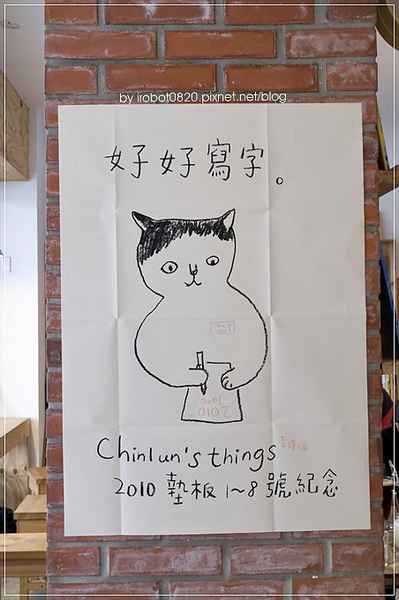 by irobot0820.pixnet.net/blog
好好寫字。
2010
Chinlun's things
2010 墊板 1～8 號紀念